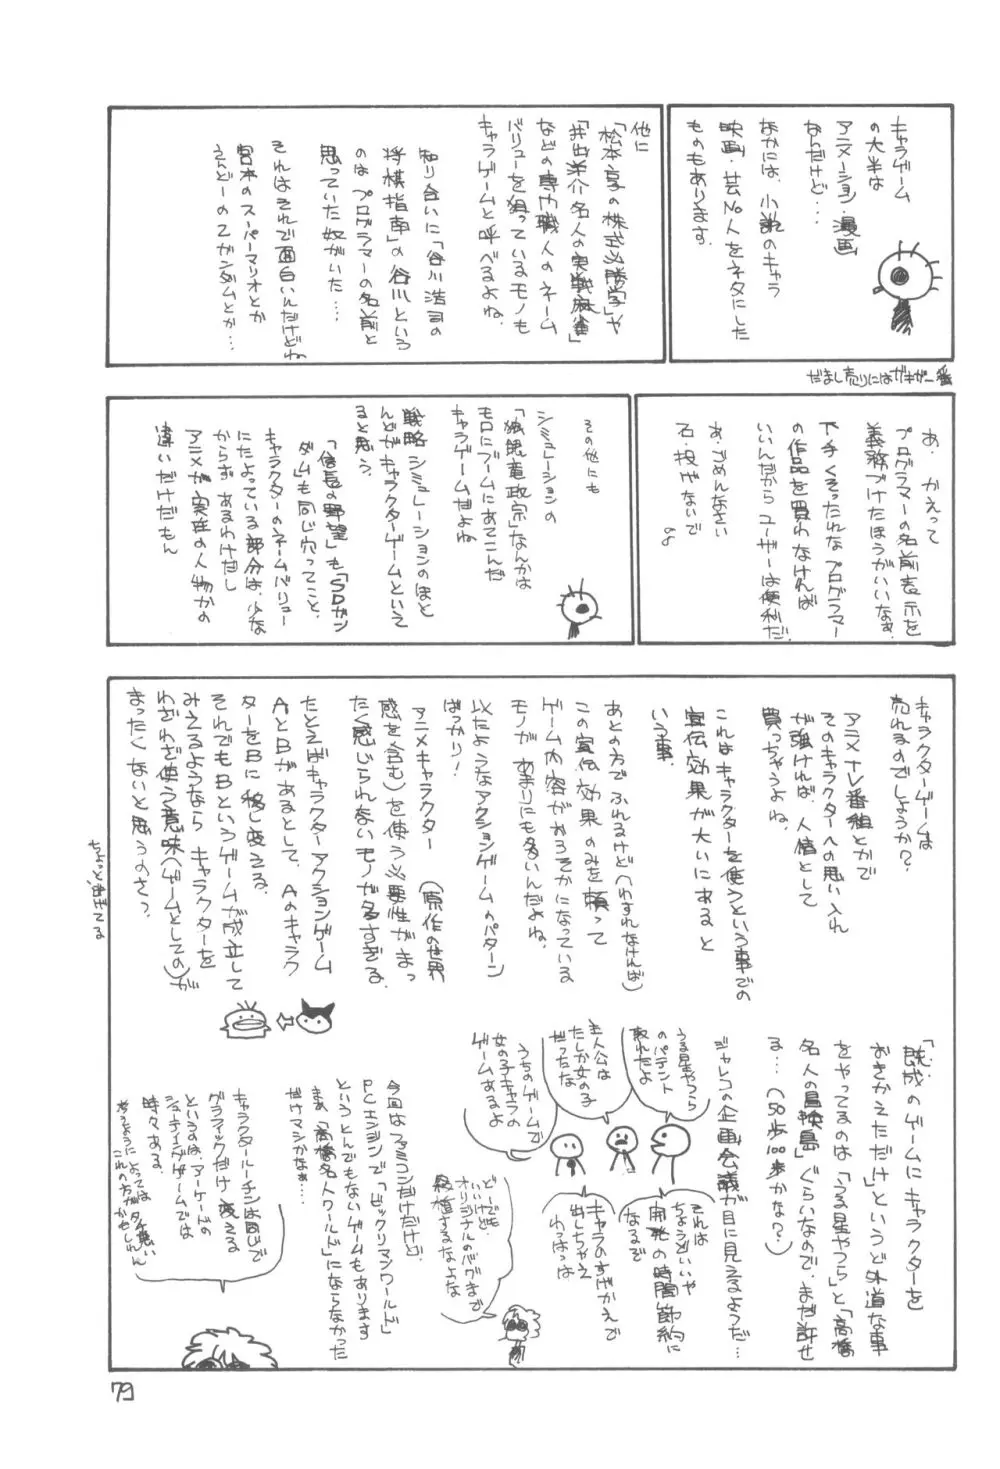 キャラゲーム
の大半は
アニメーション・漫画
なんだけど…
なかには、小説のキャラ
映画・芸No人をネタにした
ものもあります。
他に
「松本亨の株式必勝学」や
「井出洋介名人の実戦麻雀」
などの専門職人のネーム
バリューを狙っているモノも
キャラゲームと呼べるよね。
知り合いに「谷川浩司の
将棋指南」の谷川という
のはプログラマーの名前と
思っていた奴がいた…
それはそれで面白いんだけどね
宮本のスーパーマリオとか
えんどーのZガンダムとか…
だまし売りにはガキが一番
あ、かえって
プログラマーの名前表示を
義務づけたほうがいいなぁ
下手くそったれなプログラマー
の作品を買わなければ
いいんだからユーザーは便利だ。
あ、ごめんなさい
石、投げないで
その他にも
シミュレーションの
「独眼竜政宗」なんかは
モロにブームにあてこんだ
キャラゲームだよね
戦略シミュレーションのほと
んどがキャラクターゲームといえ
ると思う。
「信長の野望」も「SDガン
ダム」も同じ穴ってこと、
キャラクターのネームバリュー
にたよっている部分は、少な
からず あるわけだし
アニメが実在の人物かの
違いだけだもん
キャラクターゲームは
売れるのでしょうか?
アニメ・テレビ番組とかで
そのキャラクターへの思い入れ
が強ければ、人情として
買っちゃうよね。
これはキャラクターを使うという事での
宣伝効果が大いにあると
いう事。
あとの方でふれるけど(わすれなければ)
この宣伝効果のみを頼って
ゲーム内容がおろそかになっている
モノがあまりにも多いんだよね。
似たようなアクションゲームのパターン
ばっかり!
アニメキャラクター(原作の世界
感を含む)を使う必要性がまっ
たく感じられないモノが多すぎる。
たとえばキャラクターアクションゲーム
AとBがあるとして、Aのキャラク
ターをBに移し変える。
それでもBというゲームが成立して
みえるようなら キャラクターを
わざわざ使う意味(ゲームとしての)が
まったくないと思うのさっ。
「既成のゲームにキャラクターを
おきかえただけ」というど外道な事
をやってるのは「うる星やつら」と「高橋
名人の冒険島」ぐらいなので、まだ許せ
る…(50歩100歩かな?)
ジャレコの企画会議が目に見えるようだ…
うる星やつら
のパテント
取れたよ
主人公は
たしか女の子
だったな
うちのゲームで
女の子キャラの
ゲームあるよ
それは
ちょうどいいや
開発の時間節約に
なるぞ
キャラのすげかえで
出しちゃえ
わっはっは
どーでも
いいけど
オリジナルのバグまで
移植するなよな
今回はファミコンだけだけど、
PCエンジンで「ビックリマンワールド」
というとんでもないゲームもあります
まぁ「高橋名人ワールド」にならなかった
だけマシかなぁ…
キャラクタールーチンは同じで
グラフィックだけ変える
というのは、アーケードの
シューティングゲームでは
時々ある。
考えようによっては
これの方がタチ悪い
かもしれん
79